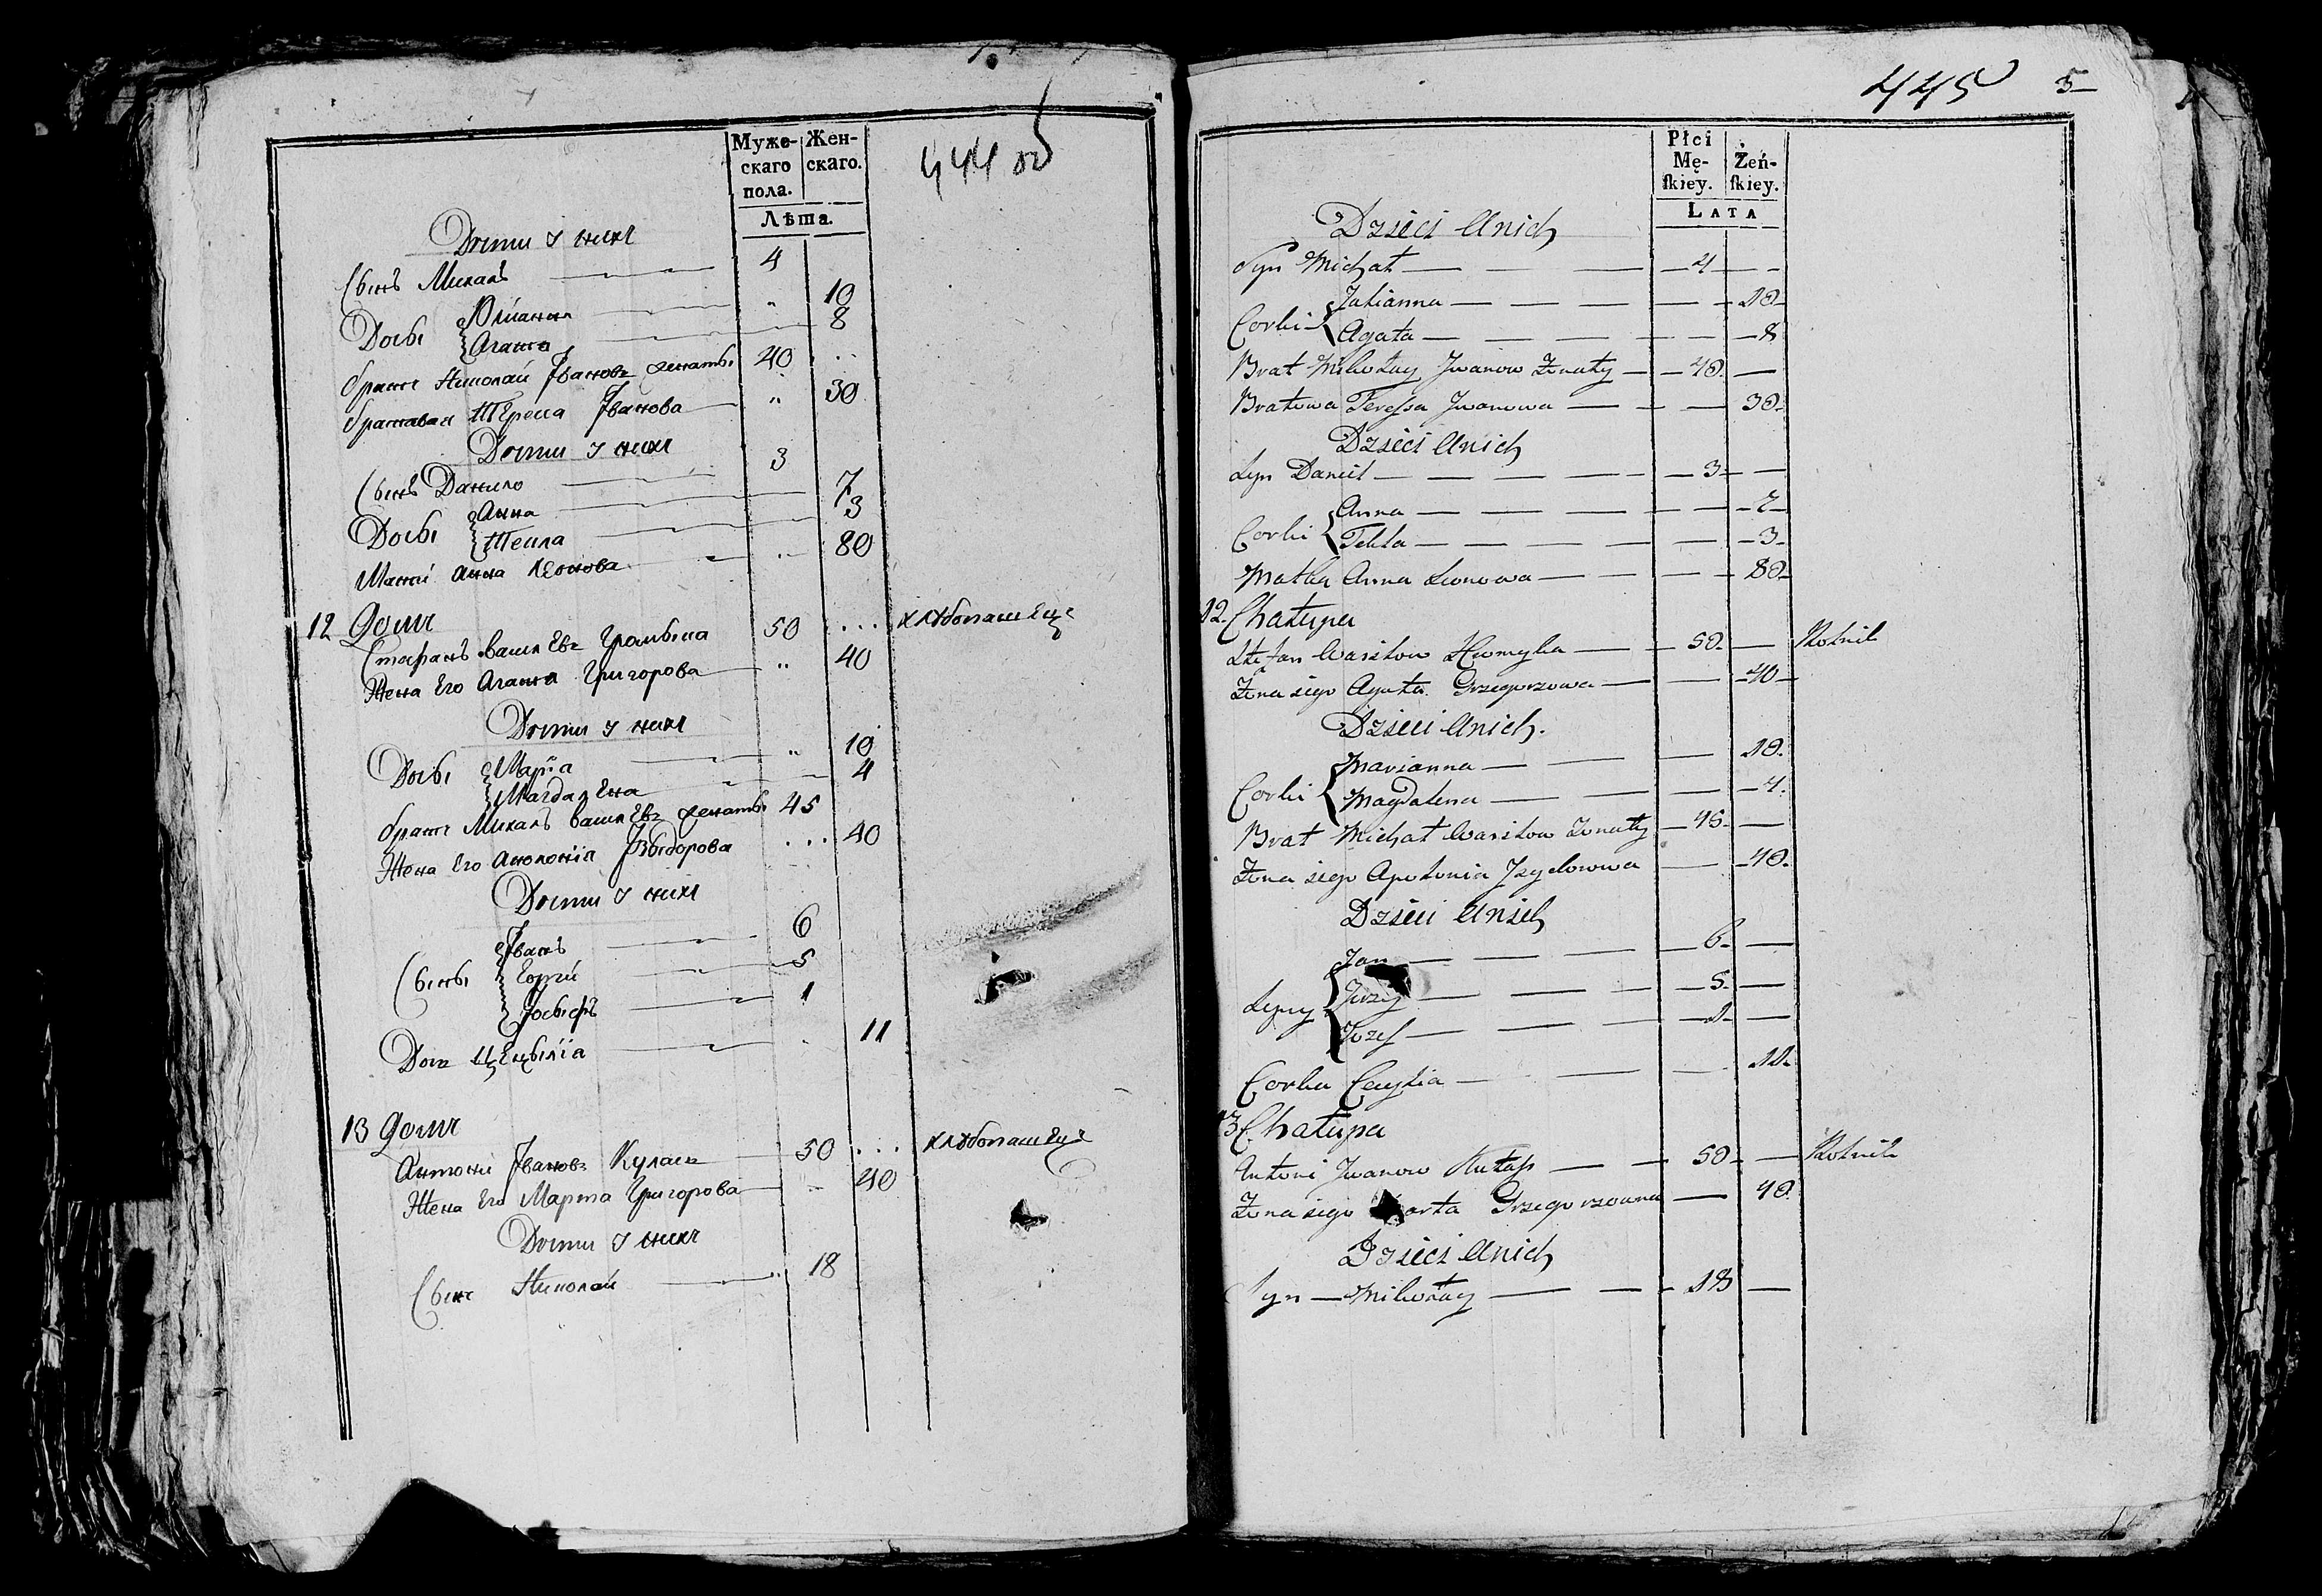 444 об
Муже-
скаго
пола.
Жен-
скаго.
Лѣта.
Дѣти У нихъ
Сынъ Михалъ 4
Дочьі Юліанна 10
Агата 8
братъ Николай Јвановъ женаты 40
братавая Тереса Јванова 30
Дѣти У нихъ
Сынъ Данило 3
Дочьі Анна 7
Текла 3
Мать анна Леонова 80
12 домъ
Стефанъ василевъ 50 хлѣбопашецъ
Жена Его Агата Григорова 40
Дѣти У нихъ
Дочьі Марїа 10
Магдалена 4
братъ Михалъ василевъ женаты 45
Жена Его аполонїя Јзыдорова 40
Дѣти У нихъ
Јванъ 6
Сыны Еоргій 5
Јосыфъ 1
Дочь Цецылїа 11
13 домъ
Антони Јвановъ Кулашъ 50 хлѣбопашецъ
Жена Его Марта Григорова 40
Дѣти У нихъ
Сынъ Николай 18
445 5
Płci
Mę-
ſkiey.
Żeń-
ſkiey.
LATA
Dzieci Unich
Syn Michał 4
Julianna 10
Corki Agata 8
Brat Mikołay Jwanow Żonaty 40
Bratowa Teressa Jwanowa 30
Dzieci Unich
Syn Daniel 3
Anna 7
Corki Tekla 3
Matka Anna Leonowa 80
12. Chałupa
Stefan Wasilow 50 Rolnik
Żona iego Agata Grzegorzowa 40
Dzieci Unich.
Marianna 10
Corki Magdalena 4
Brat Michał Wasilow Żonaty 45
Żona iego Apolonia Jzydorowa 40
Dzieci Unich
Jan 6
Syny Jerzy 5
Jozef 1
Corka Cecylia 11
13 Chałupa
Antoni Jwanow Kulass 50 Rolnik
Żona iego Marta Grzegorzowna 40
Dzieci Unich
Syn Mikołay 18